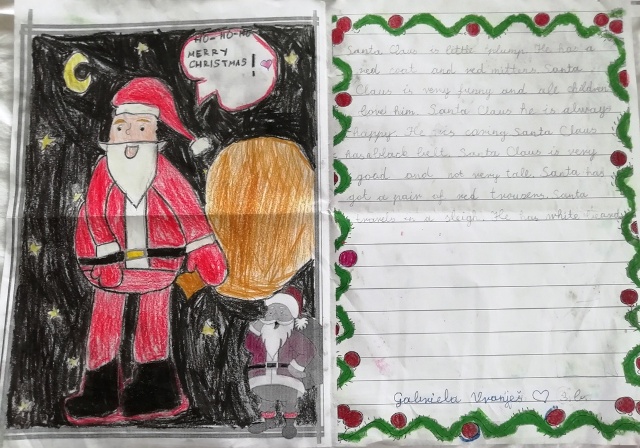 HO-HO-HO
MERRY
CHRISTMAS!
Santa Claus is little plump. He has a
red coat and red mittens. Santa
Claus is very funny and all children
love him. Santa Claus he is always
happy. He is Santa Claus
has black belt. Santa Claus is very
good and not very tall. Santa has
got a pair of red trousers. Santa
travels in a sleigh. He has white beard
Gabriela Vranješ